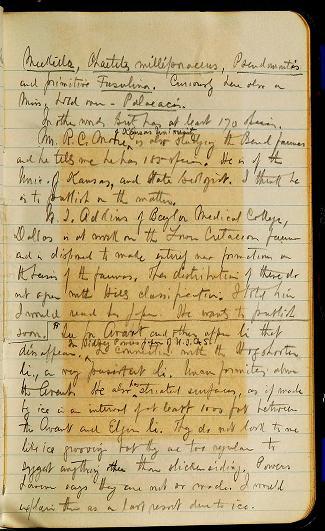 Meekella, Chaetetes milleporaceus, Pseudomonotis
and primitive Fusulina. Curiously here also
Miss. hold over - Palaeacis.
In other words Girty has at least 170 species.
Mr. R. C. Moore, Kansas Univ., is also studying the Bend faunas
and he tells me he has 180 species. He is of the
Univ. of Kansas, and State Geologist. I think he
is to publish on the matter.
W. I. Addkins of Baylor Medical College,
Dallas is at work on the Lower Cretaceous faunas
and is disposed to make several new formations on
the basis of the faunas. The distribution of these do
not agree with Hill's classification. I told him
I would read his paper. He wants to publish
soon. for Avant and other upper li. that
disappear, in connection with the Hogshooter
li., a very persistent li. Unconformities above
the Avant. He also has striated surfaces, as if made
by ice in an interval of at least 1000 feet between
the Avant and Elgin li. They do not look to me
like ice groovings but they are too regular to
suggest anything other than slickensiding. Powers
says they are not so made. I would
explain them as a last resort due to ice.